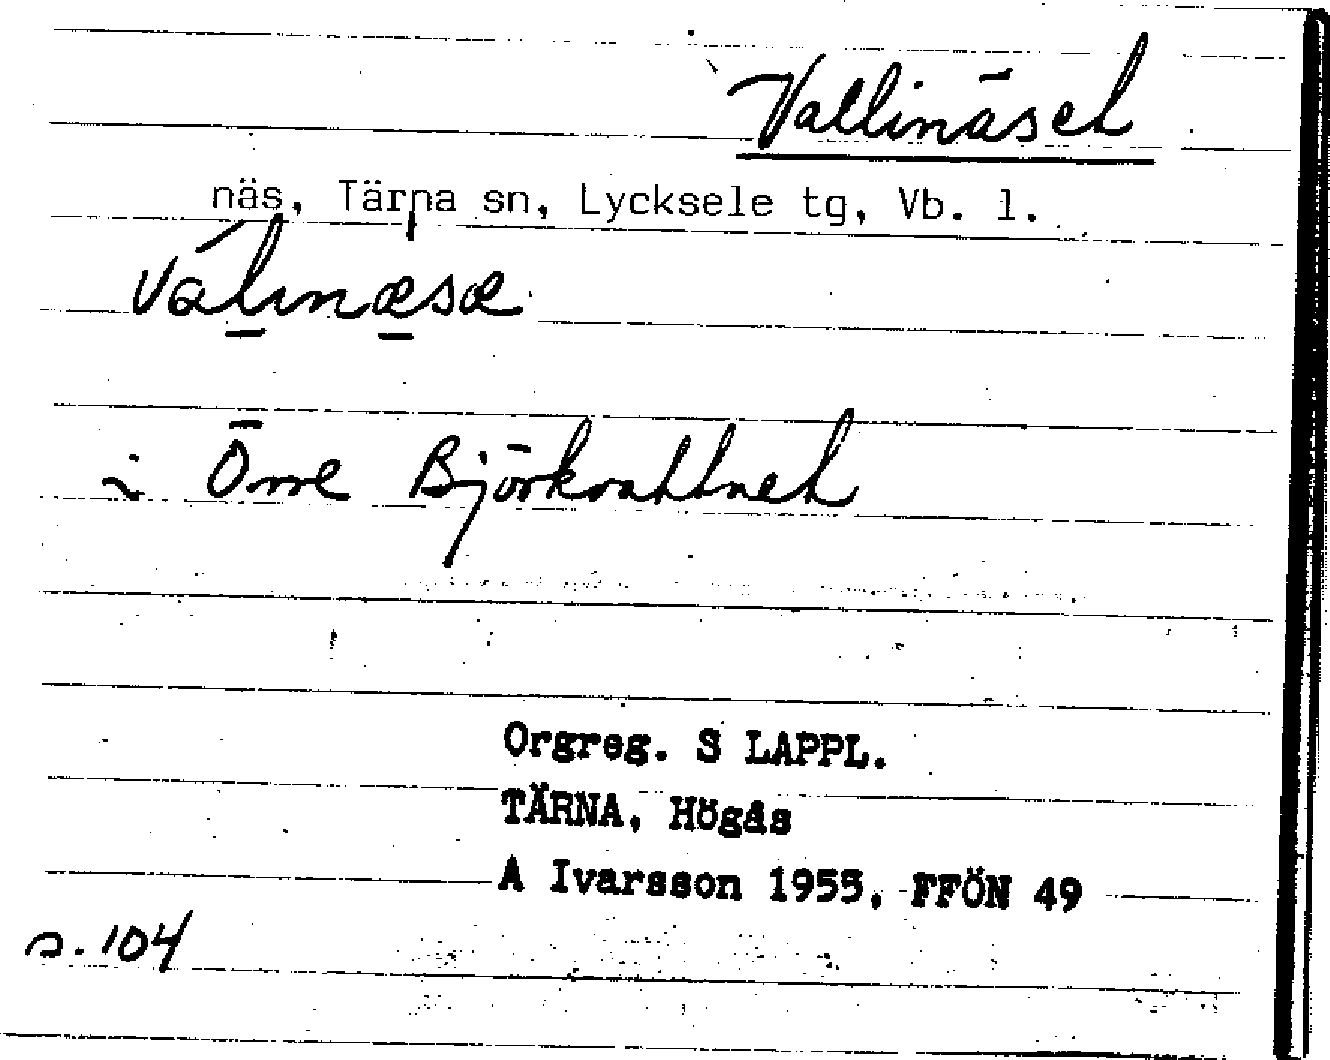 Vallinäset
näs, Tärna sn, Lycksele tg, Vb. l.
válinæsæ
i Övre Björkvattnet
Orgreg. S LAPPL.
TÄRNA, Högås
A Ivarsson 1955, FFÖN 49
s. 104